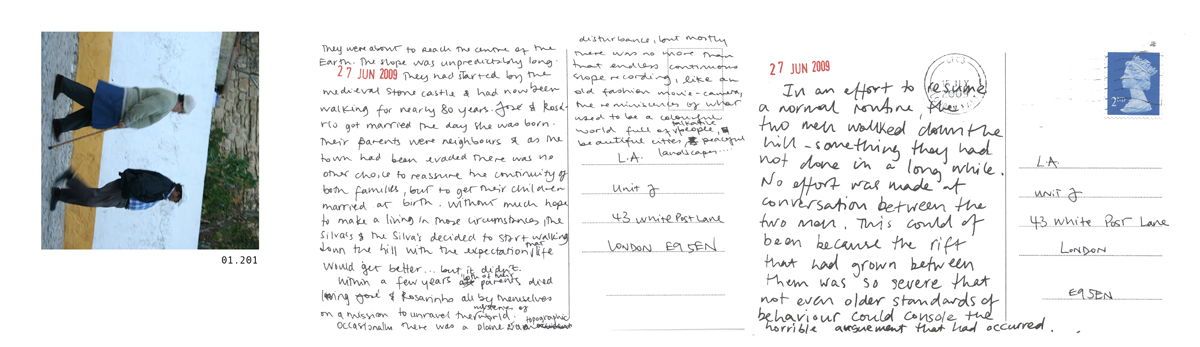 01.201
They were about to reach the centre of the
Earth. The slope was unpredictably long.
27 JUN 2009 They had started by the
medieval stone castle & had now been
walking for nearly 80 years. José & Rosa-
rio got married the day she was born.
Their parents were neighbours & as the
town had been evaded there was no
other choice to reassure the continuity of
both families, but to get their children
married at birth. Without much hope
to make a living in those circumstances, the
Silva's & the Silva's decided to start walking
down the hill with the expectation that life
would get better... but it didn't.
Within a few years both of their parents died
José & Rosarinho all by themselves
on a mission to unravel the mysteries of world.
Occasionally there was a plane or a topographic
disturbance, but mostly
there was no more than
that endless continuous
slope recording, like an
old fashion movie-camera,
the reminiscences of what
used to be a colourful
world full of talkative people,
beautiful cities, peaceful
landscapes....
L.A.
Unit J
43 White Post Lane
LONDON E9 5EN
27 JUN 2009
In an effort to resume
a normal routine, the
two men walked down the
hill - something they had
not done in a long while.
No effort was made at
conversation between the
two men. This could of
been because the rift
that had grown between
them was so severe that
not even older standards of
behaviour could console the
horrible arguement that had occurred.
2nd
L.A.
Unit J
43 White Post Lane
LONDON
E9 5EN